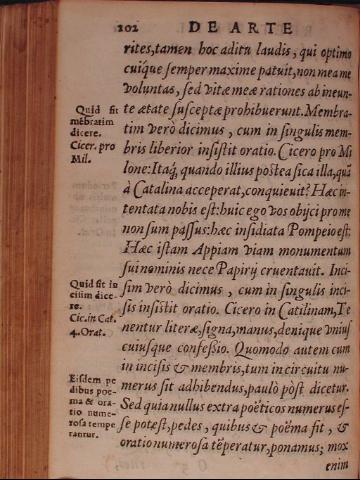 202 DE ARTE
rites, tamen hoc aditu laudis, qui optimo
cuiq́ue semper maxime patuit, non mea me
voluntas, sed vitæ meæ rationes ab ineun-
te ætate susceptæ prohibuerunt. Membra-
tim verò dicimus, cum in singulis mem-
bris liberior insistit oratio. Cicero pro Mi
lone: Itaq́, quando illius postea sica illa, quã
à Catalina acceperat, conquieuit? Hæc in-
tentata nobis est: huic ego vos obijci pro me
non sum passus: hæc insidiata Pompeio est:
Hæc istam Appiam viam monumentum
sui nominis nece Papirij cruentauit. Inci-
sim verò dicimus, cum in singulis inci-
sis insistit oratio. Cicero in Catilinam, Te
nentur literæ, signa, manus, denique vniuf
cuiusque confessio. Quomodo autem cum
in incisis & membris, tum in circuitu nu-
merus sit adhibendus, paulò pòst dicetur.
Sed quia nullus extra poëticos numerus es-
se potest, pedes, quibus & poëma fit, &
oratio numerosa tẽperatur, ponamus; mox
enim
Quid sit
mẽbratim
dicere.
Cicer. pro
Mil.
Quid sit in
cisim dice-
re.
Cic. in Cat.
4. Orat.
Eisdem pe
dibus poe-
ma & ora-
tio nume-
rosa tempe
rantur.